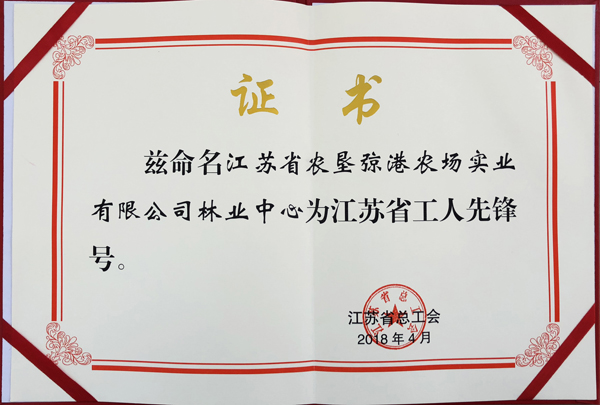 证书
兹命名江苏省农垦弶港农场实业
有限公司林业中心为江苏省工人先锋
号。
江苏省总工会
江苏省总工会
2018年4月